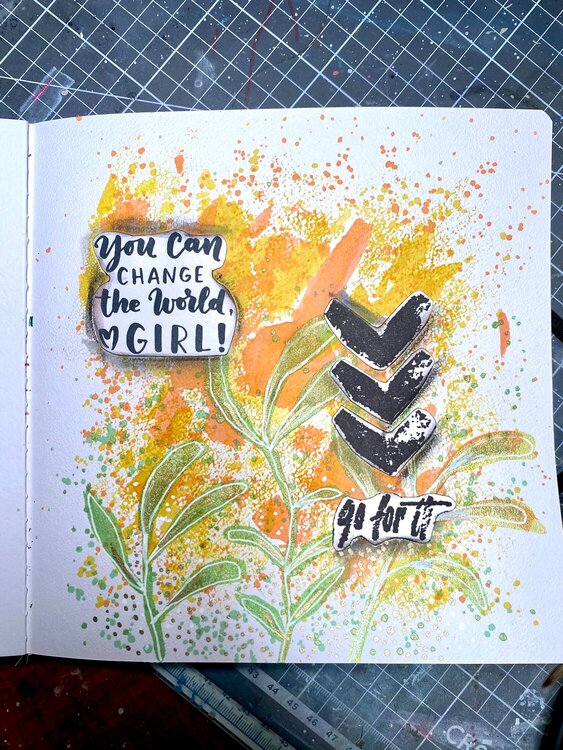 You Can
CHANGE
the World,
GIRL!
go for it
43 44 45 46 47